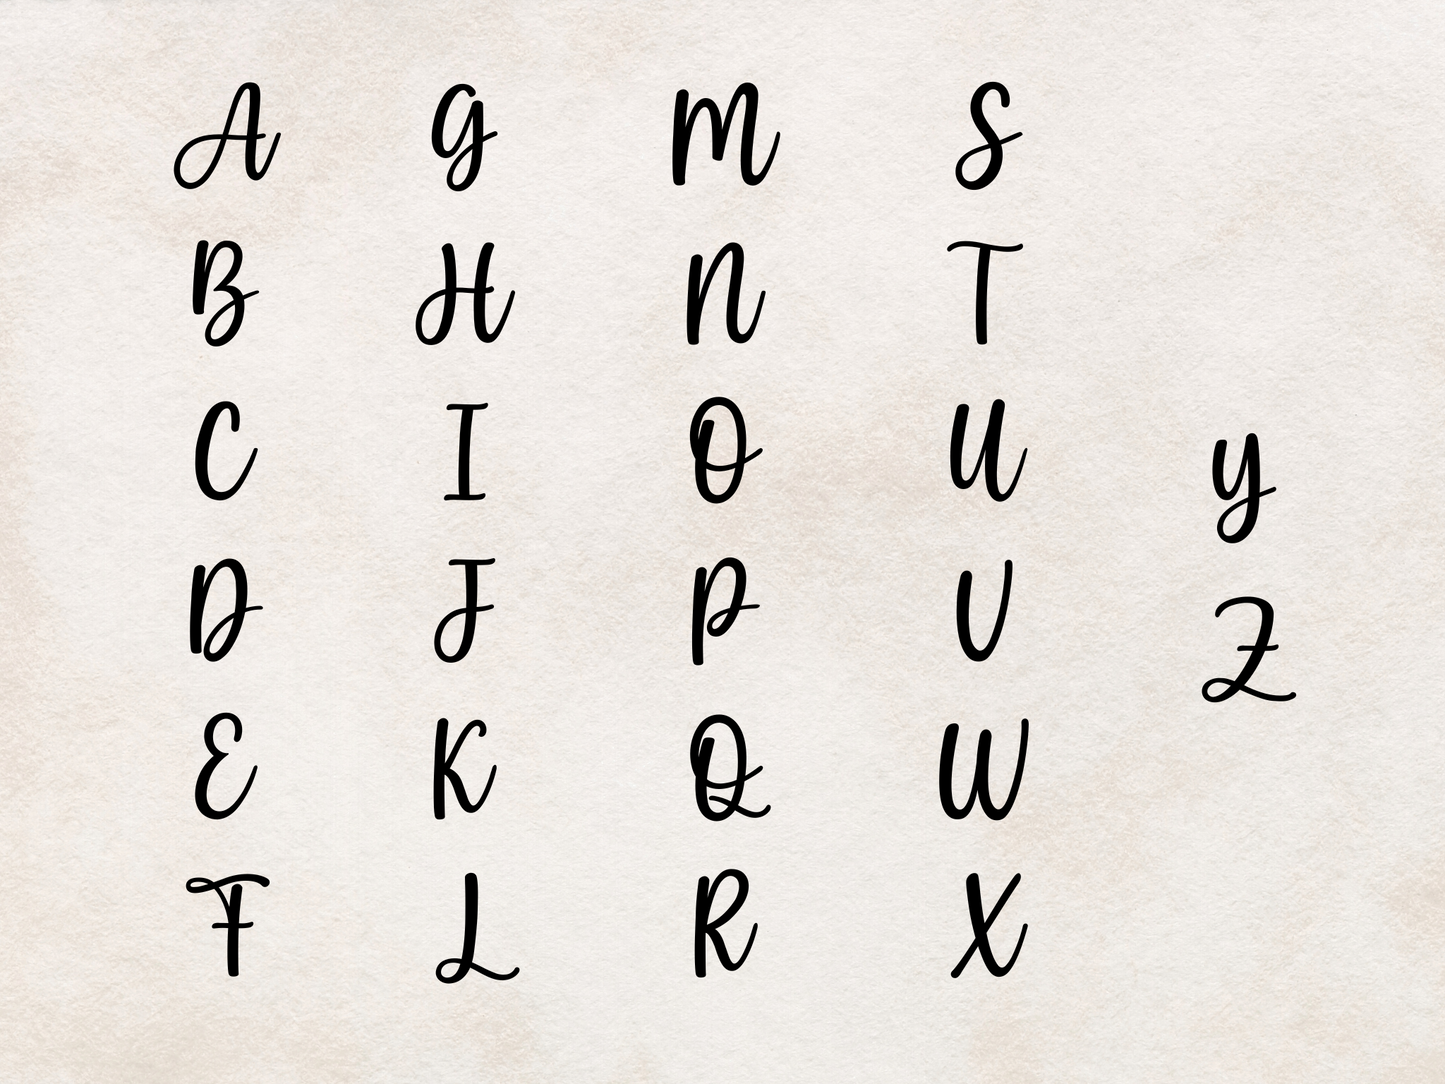 A
B
C
D
E
F
G
H
I
J
K
L
M
N
O
P
Q
R
S
T
U
V
W
X
y
Z